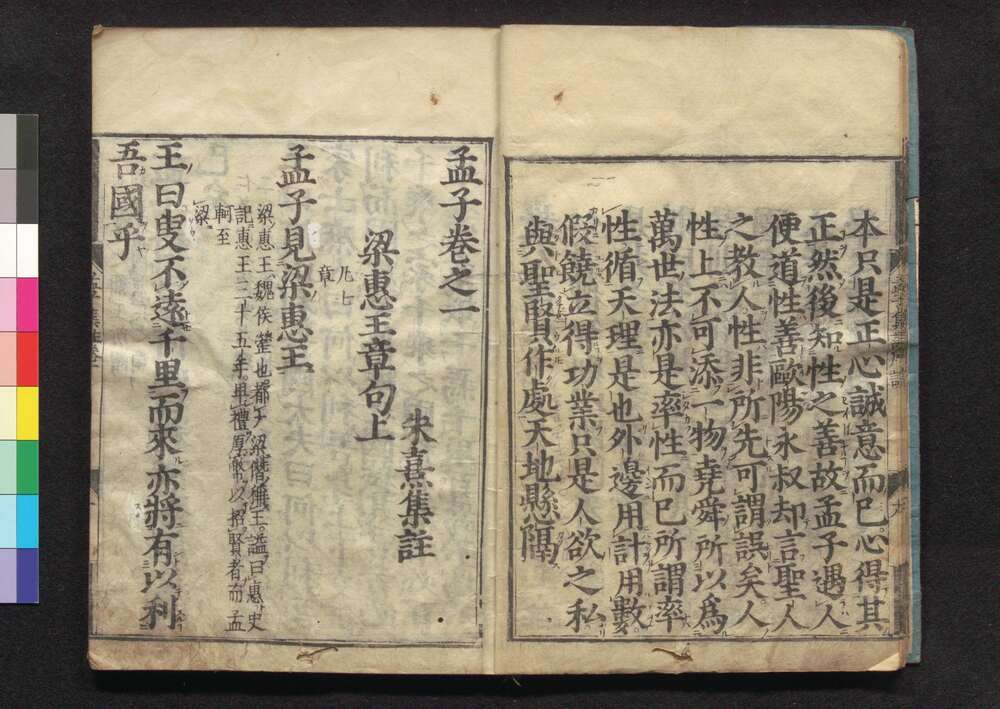 本只是正心誠意而已心得其
正然後知性之善故孟子遇人
便道性善歐陽永叔却言聖人
之教人性非所先可謂誤矣人
性上不可添一物堯舜所以爲
萬世法亦是率性而已所謂率
性循天理是也外邊用計用數
假饒立得功業只是人欲之私
與聖賢作處天地懸隔
孟子卷之一
朱熹集註
梁惠王章句上
凡七
章
孟子見梁惠王
梁惠王魏侯罃也都大梁僭稱王謚曰惠史
記惠王三十五年卑禮厚幣以招賢者而孟
軻至
梁
王曰叟不遠千里而來亦將有以利
吾國乎